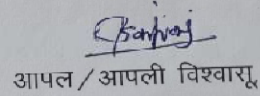 आपल / आपली विश्वासू